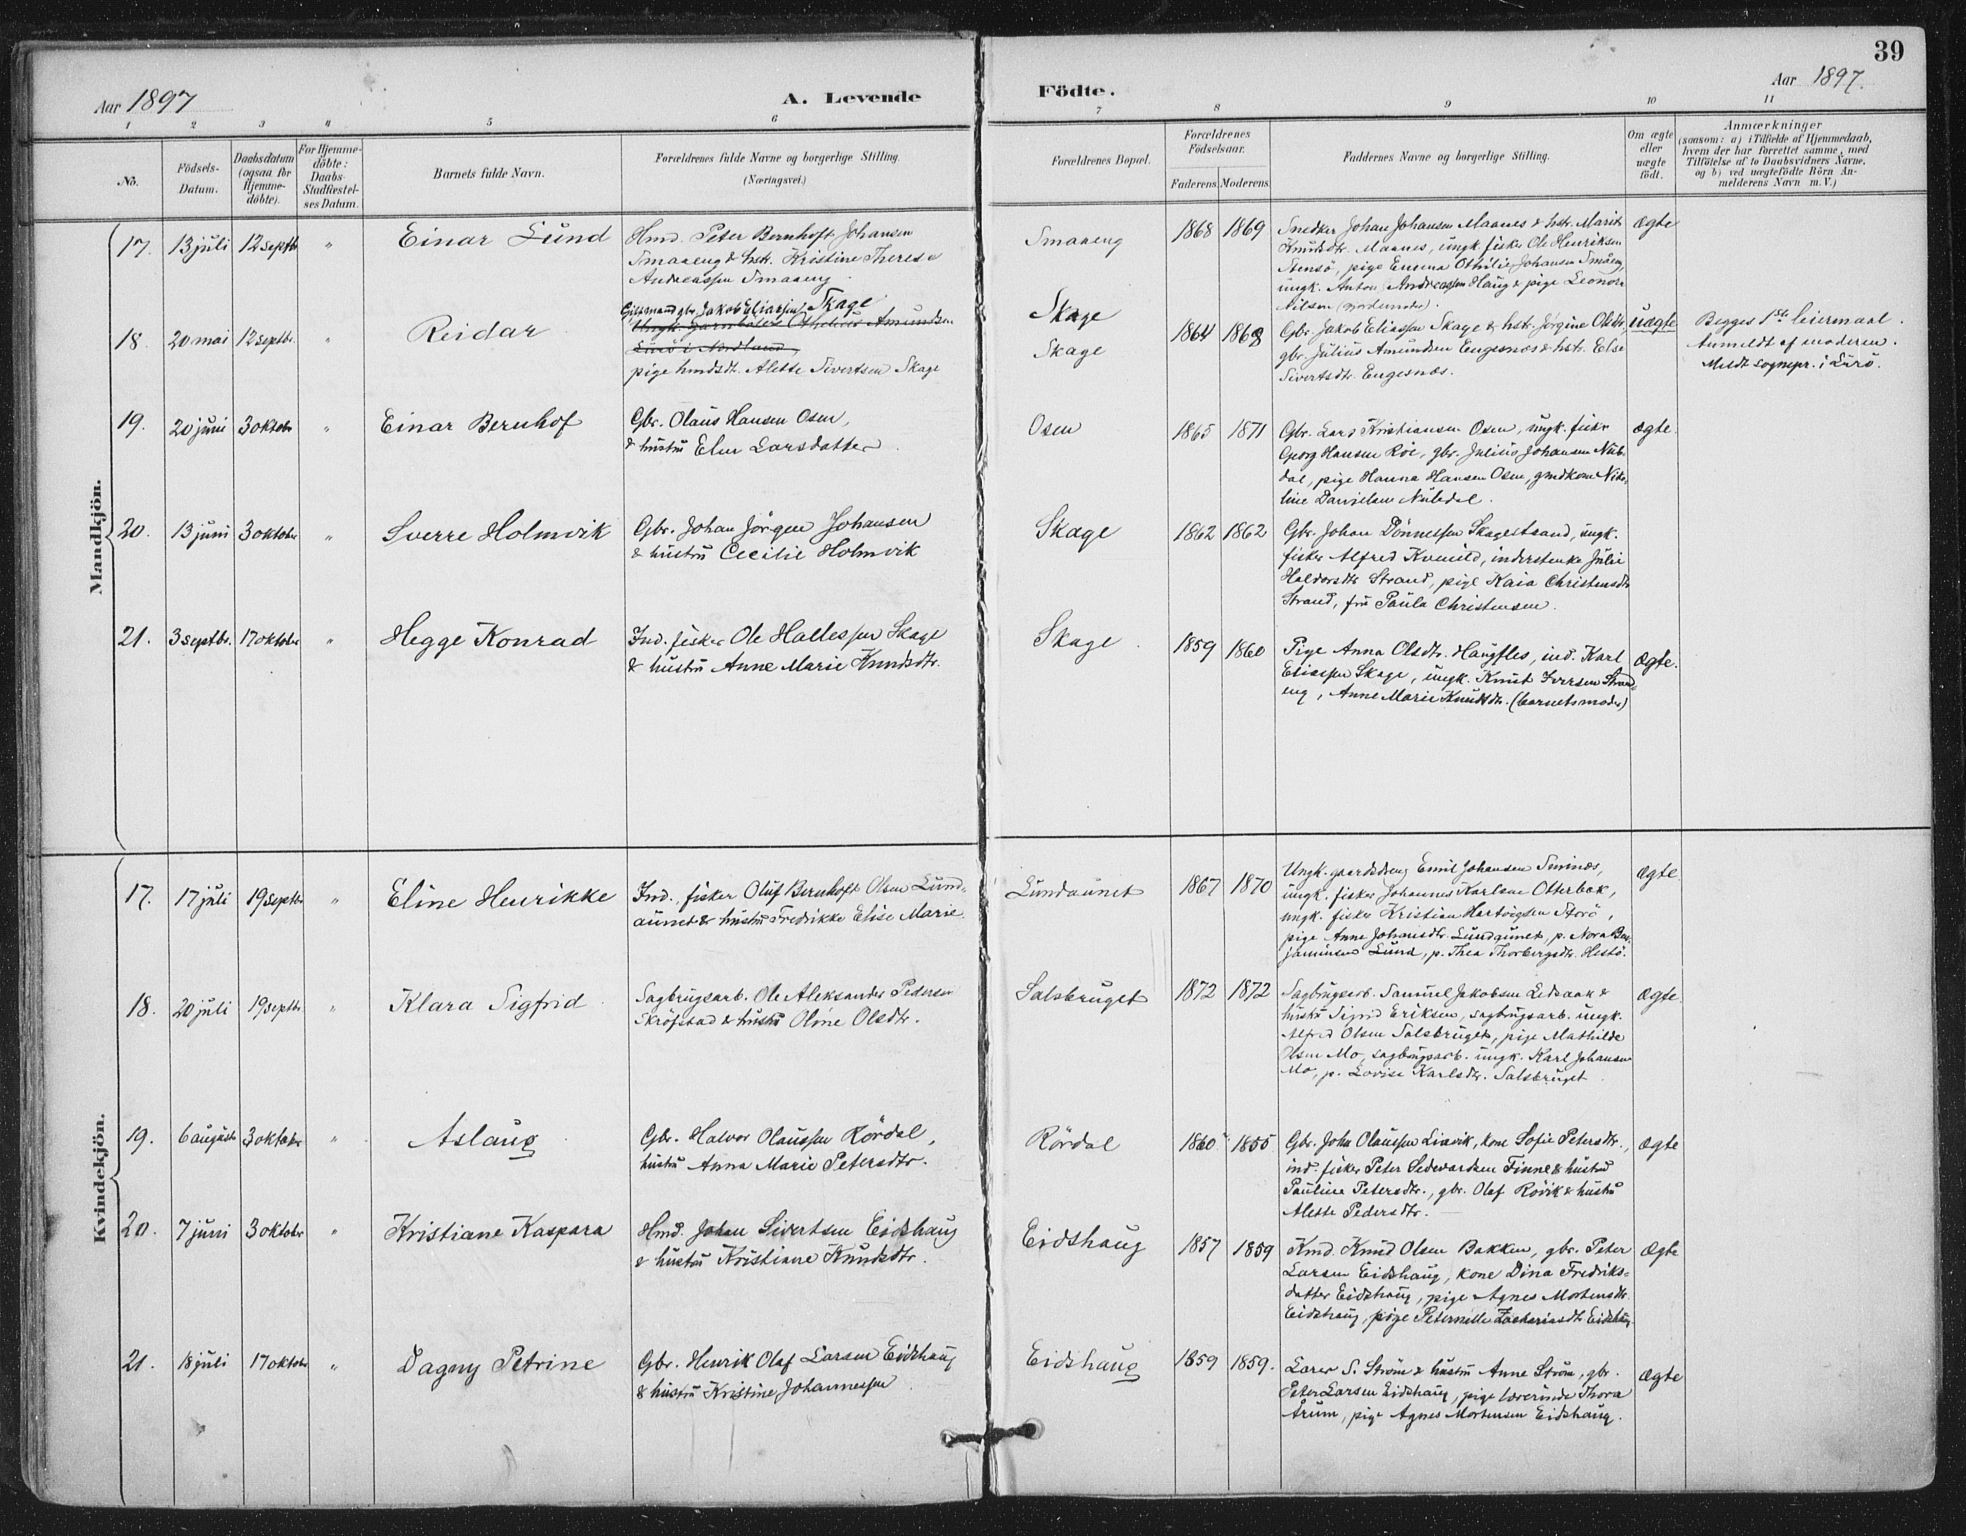 39
Aar 1897
A. Levende
Födte.
Aar 1897.
1 2 3 4 5 6 7 8 9 10 11
No.
Födsels-
Datum.
Daabsdatum
(ogsaa for
Hjemme-
döbte).
For Hjemme-
döbte:
Daabs-
Stadfæstel-
ses Datum.
Barnets fulde Navn.
Forældrenes fulde Navne og borgerlige Stilling.
(Næringsvei.)
Forældrenes Bopæl.
Forældrenes
Födselsaar.
Faderens Moderens
Faddernes Navne og borgerlige Stilling.
Om ægte
eller
uægte
födt.
Anmærkninger
(saasom: a) i Tilfælde af Hjemmedaab,
hvem der har forrettet samme, med
Tilföielse af to Daabsvidners Navne,
og b) ved uægtefödte Börn An-
melderens Navn m. V.)
Mandkjön.
17. 13 juli 12 septb. " Einar Lund
Hmd. Peter Bernhoft Johansen
Smaaeng & hstr. Kristine Therese
Andreassen Smaaeng
Smaaeng 1868 1869
Snedker Johan Johansen Maanes & hstr. Marit
Knudsdtr. Maanes, ungk. fisker Ole Henriksen
Stensö, pige Emma Othilie Johansen Småeng,
ungk. Anton Andreassen Haug & pige Leonora
Nilsen
Ægte
18. 20 mai 12 septbr. " Reidar
Giftmand gbr. Jakob Eliassen Skage
pige hmdsdtr. Alette Sivertsen Skage
Skage
Skage
1864 1868
Gbr. Jakob Eliassen Skage & hstr. Jörgine Olsdtr.,
gbr. Julius Amundsen Engesnæs & hstr. Else
Sivertsdtr. Engesnæs.
Uægte
Begges 1ste leiermaal.
Anmeldt af moderen.
Meldt sognepr. i Lurö.
19. 20 juni 3 oktobr "
Einar Bernhof
Gbr. Olaus Hansen Osen,
& hustru Elen Larsdatter
Osen 1865 1871
Gbr. Lars Kristiansen Osen, ungk. fisker
Georg Hansen Roe, gbr. Julius Johansen Nub-
dal, pige Hanna Hansen Osen, gmdkone Niko-
line Danielsen Nubdal.
Ægte.
20. 13 juni 3 oktober " Sverre Holmvik
Gbr. Johan Jörgen Johansen
& hustru Cecilie Holmvik
Skage 1862 1862
Gbr. Johan Dönnessen Skagestrand, ungk.
fisker Alfred Kvenild, inderstenke Julie
Haldorsdtr. Strand, pige Kaia Christensdtr.
Strand, fru Paula Christensen.
21. 3 septbr. 17 oktober " Hegge Konrad
Ind. fisker Ole Hallessen Skage
& hustru Anne Marie Knudsdtr.
Skage 1859 1860
Pige Anna Olsdtr. Haugfles, ind. Karl
Eliassen Skage, ungk. Knut Iversen Strand-
eng, Anne Marie Knudsdtr. (barnets moder)
Ægte.
Kvindekjön.
17. 17 juli 19 septbr " Eline Henrikke
Ind. fisker Oluf Bernhoft Olsen Lund-
aunet & hustru Fredrikke Elise Marie
Lundaunet 1867 1870
Ungk. gaardsdreng Emil Johansen
ungk. fisker Johannes Karlsen Otterbak,
ungk. fisker Kristian Hartvigsen Storö,
pige Anne Johansdtr. Lundaunet, p. Nora Ben-
jaminsen Lund, p. Thea Thorbergsdtr. Hestö.
Ægte
18. 20 juli 19 septbr " Klara Sigfrid
Sagbrugsarb. Ole Aleksander Pedersen
Skröfstad & hustru Oline Olsdtr.
Salsbruget 1872 1872
Sagbrugsarb. Samuel Jakobsen Ledsaak &
hustru Sigrid Eriksen, sagbrugsarb. ungk.
Alfred Olsen Salsbruget, pige Mathilde
Olsen Mo, sagbrugsarb. ungk. Karl Johansen
Mo, p. Lovise Karlsdtr. Salsbruget
Ægte.
19. 6 august 3 oktober " Aslaug
Gbr. Halvor Olaussen Rördal,
hustru Anna Marie Petersdtr.
Rördal 1860 1855
Gbr. John Olaussen Liavik, kone Sofie Petersdtr.,
ind. fisker Peter Sedevardsen Finne & hustru
Pauline Petersdtr., gbr. Olaf Rövik & hustru
Alette Pedersdtr.
Ægte
20. 7 juni 3 oktober " Kristiane Kaspara
Hmd. Johan Sivertsen Eidshaug
& hustru Kristiane Knudsdtr.
Eidshaug 1857 1859
Kmd. Knud Olsen Bakken, gbr. Peter
Larsen Eidshaug, kone Dina Fredriks-
datter Eidshaug, pige Agnes Mortensdtr.
Eidshaug, pige Peternelle Zachariasdtr Eidshaug
Ægte
21. 18 juli 17 oktobr " Dagny Petrine
Gbr. Henrik Olaf Larsen Eidshaug
& hustru Kristine Johannessen
Eidshaug 1859 1859.
Lærer S. Ström & hustru Anne Ström, gbr.
Peter Larsen Eidshaug, pige lærerinde Thora
Årum, pige Agnes Mortensen Eidshaug.
Ægte